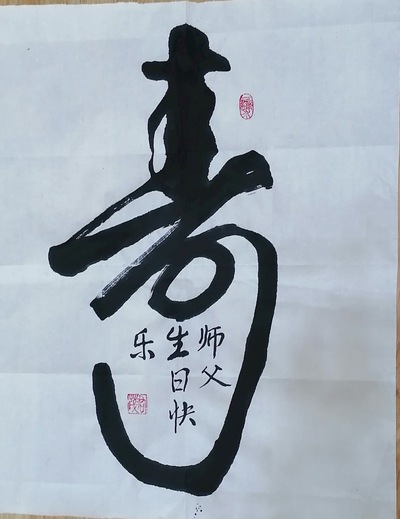 寿
师父
生日快
乐